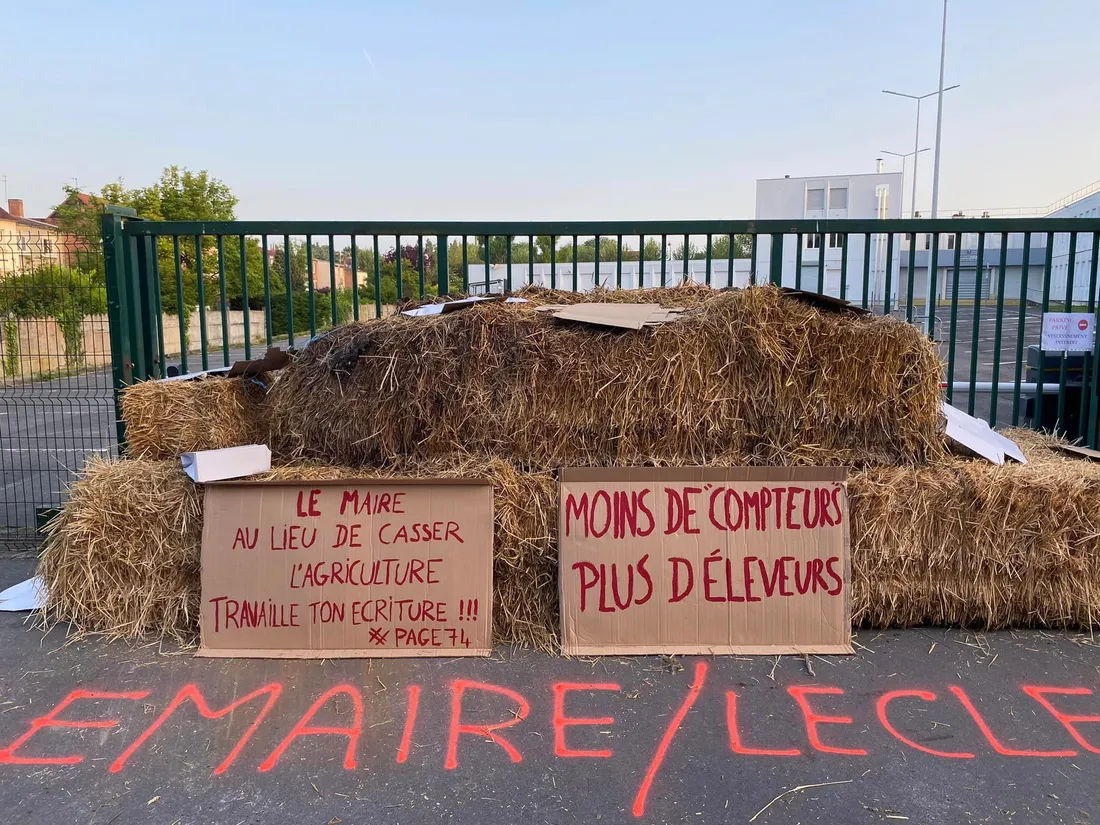 LE MAIRE
AU LIEU DE CASSER
L'AGRICULTURE
TRAVAILLE TON ECRITURE !!!
* PAGE 74
MOINS DE "COMPTEURS"
PLUS D ÉLEVEURS
PARKING
PRIVÉ
STATIONNEMENT
INTERDIT
EMAIRE/LECLE